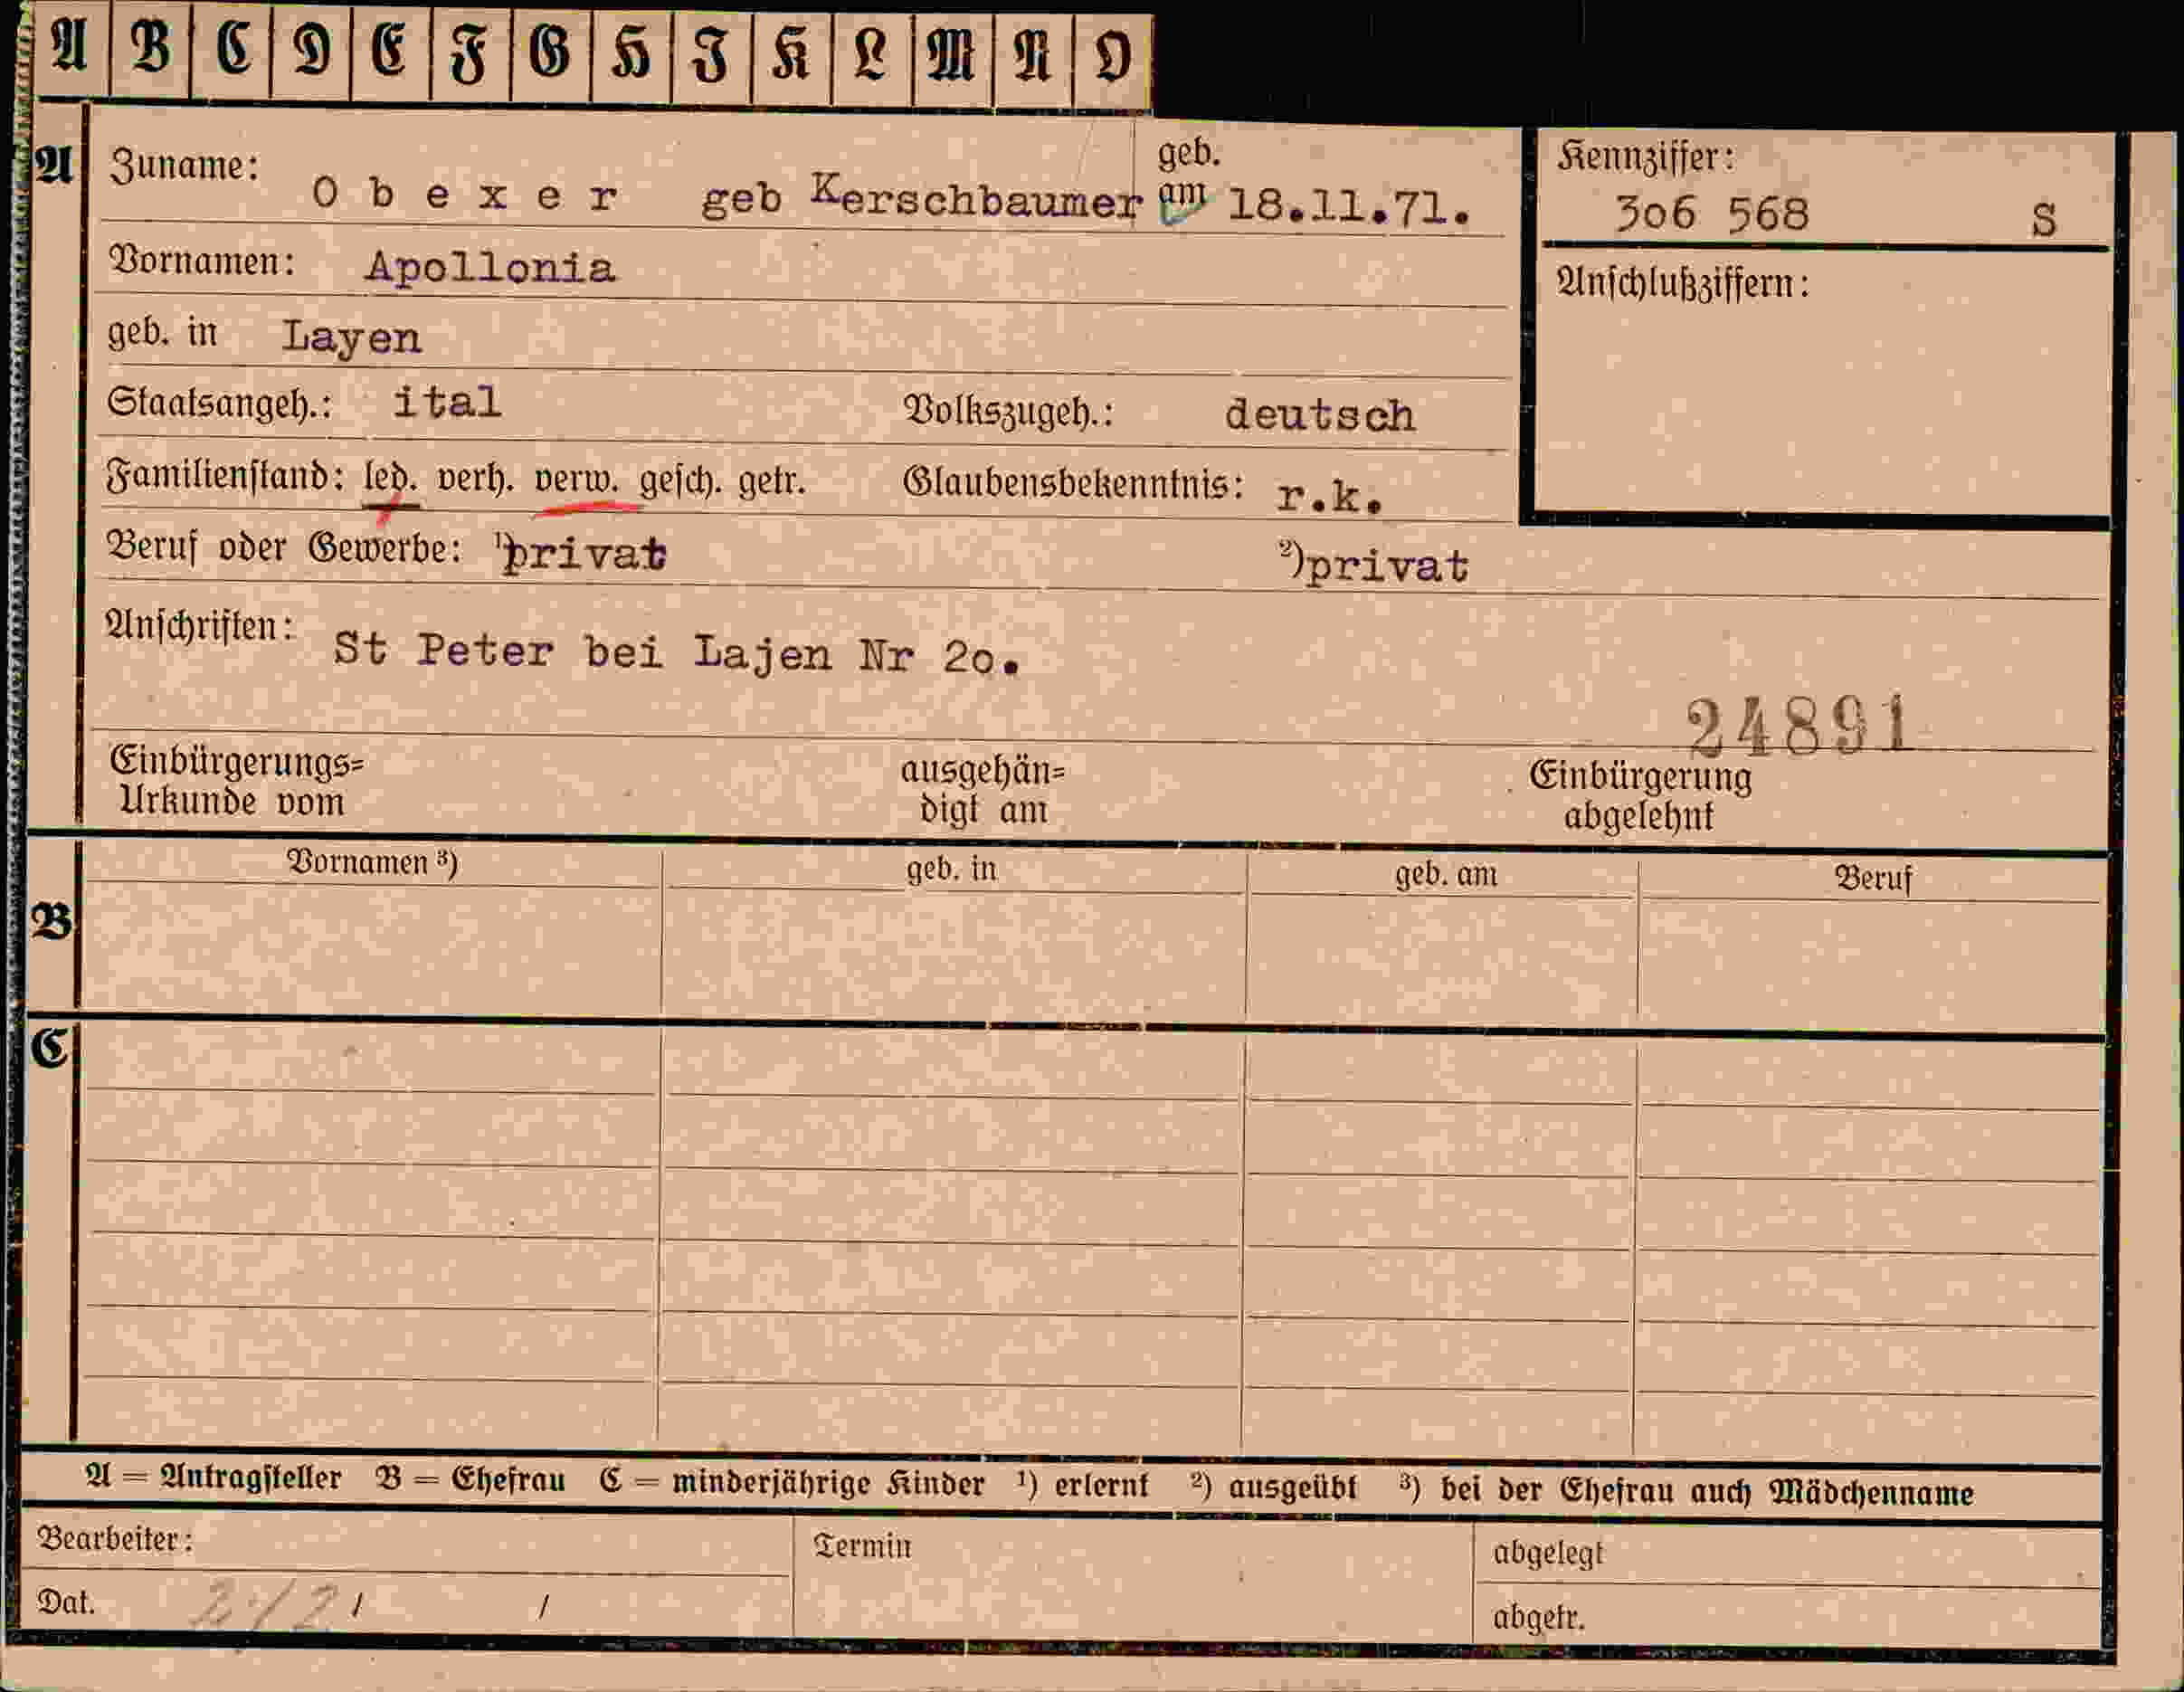 A B C D E F G H I K L M N O
A Zuname: Obexer geb Kerschbaumer geb. am 18.11.71.
Kennziffer:
306 568 S
Vornamen: Apollonia
Anschlußziffern:
geb. in Layen
Staatsangeh.: ital Volkszugeh.: deutsch
Familienstand: led. verh. verw. gesch. getr. Glaubensbekenntnis: r.k.
Beruf oder Gewerbe: ¹)privat ²)privat
Anschriften: St Peter bei Lajen Nr 20.
24891
Einbürgerungs= ausgehän= Einbürgerung
Urkunde vom digt am abgelehnt
Vornamen ³) geb. in geb. am Beruf
B
C
A = Antragsteller B = Ehefrau C = minderjährige Kinder ¹) erlernt ²) ausgeübt ³) bei der Ehefrau auch Mädchenname
Bearbeiter: Termin abgelegt
Dat. / /
abgetr.